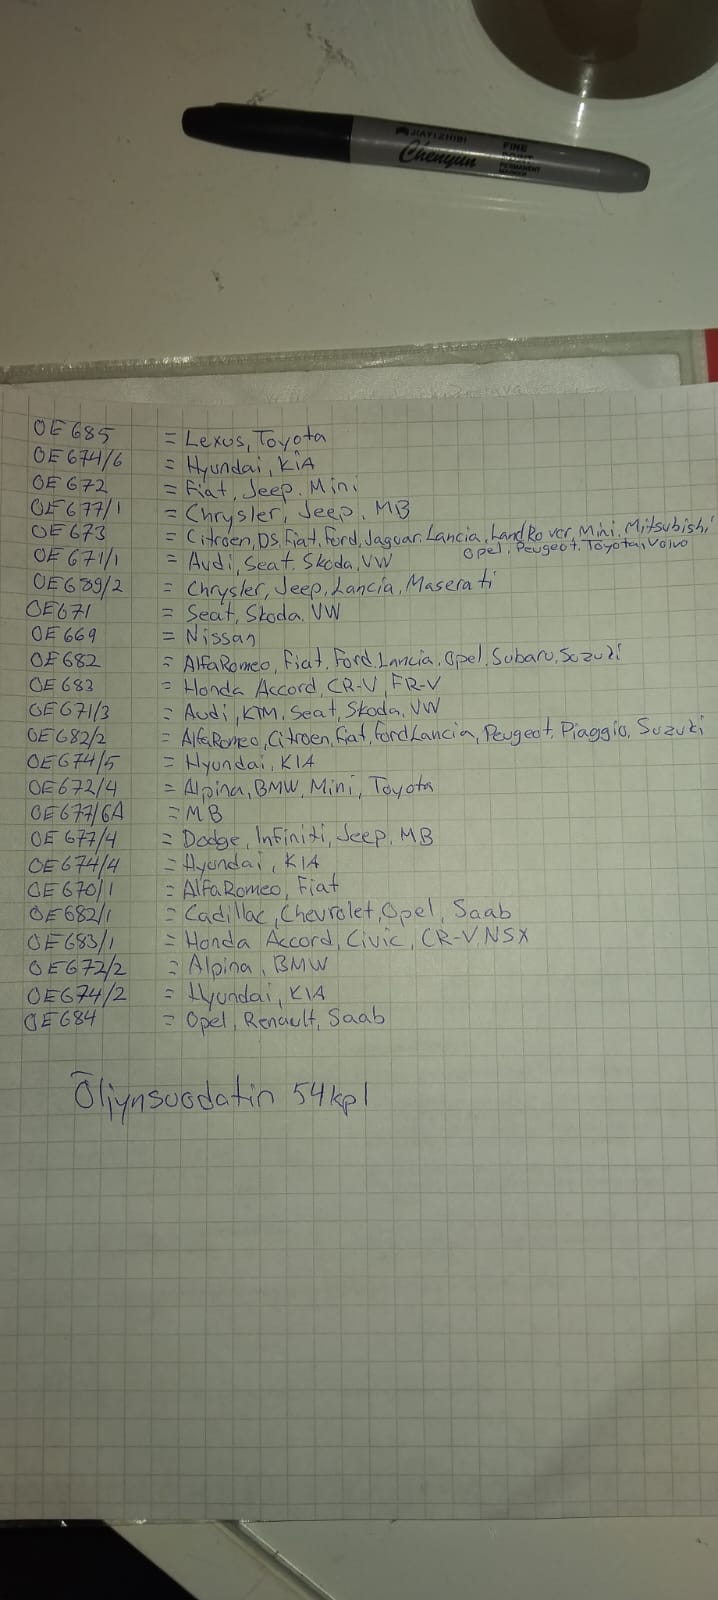 JIAYIZHIBI
Chenyun
FINE
POINT
PERMANENT
MARKER
OE685 = Lexus, Toyota
OE674/6 = Hyundai, KIA
OE672 = Fiat, Jeep, Mini
OE677/1 = Chrysler, Jeep, MB
OE673 = Citroen, DS, Fiat, Ford, Jaguar, Lancia, Land Rover, Mini, Mitsubishi,
Opel, Peugeot, Toyota, Volvo
OE671/1 = Audi, Seat, Skoda, VW
OE689/2 = Chrysler, Jeep, Lancia, Maserati
OE671 = Seat, Skoda, VW
OE669 = Nissan
OE682 = AlfaRomeo, Fiat, Ford, Lancia, Opel, Subaru, Suzuki
OE683 = Honda Accord, CR-V, FR-V
OE671/3 = Audi, KTM, Seat, Skoda, VW
OE682/2 = AlfaRomeo, Citroen, Fiat, Ford Lancia, Peugeot, Piaggio, Suzuki
OE674/5 = Hyundai, KIA
OE672/4 = Alpina, BMW, Mini, Toyota
OE677/6A = MB
OE677/4 = Dodge, Infiniti, Jeep, MB
OE674/4 = Hyundai, KIA
OE670/1 = AlfaRomeo, Fiat
OE682/1 = Cadillac, Chevrolet, Opel, Saab
OE683/1 = Honda Accord, Civic, CR-V, NSX
OE672/2 = Alpina, BMW
OE674/2 = Hyundai, KIA
OE684 = Opel, Renault, Saab
Öljynsuodatin 54kpl